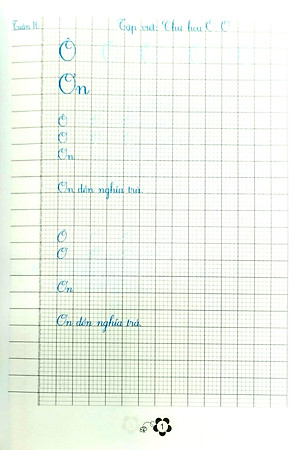 Tuần 11: Tập viết: Chữ hoa Ô, Ơ
Ô
Ơn
Ô
Ơ
Ơn
Ơn đền nghĩa trả.
Ô
Ơ
Ơn
Ơn đền nghĩa trả.
1